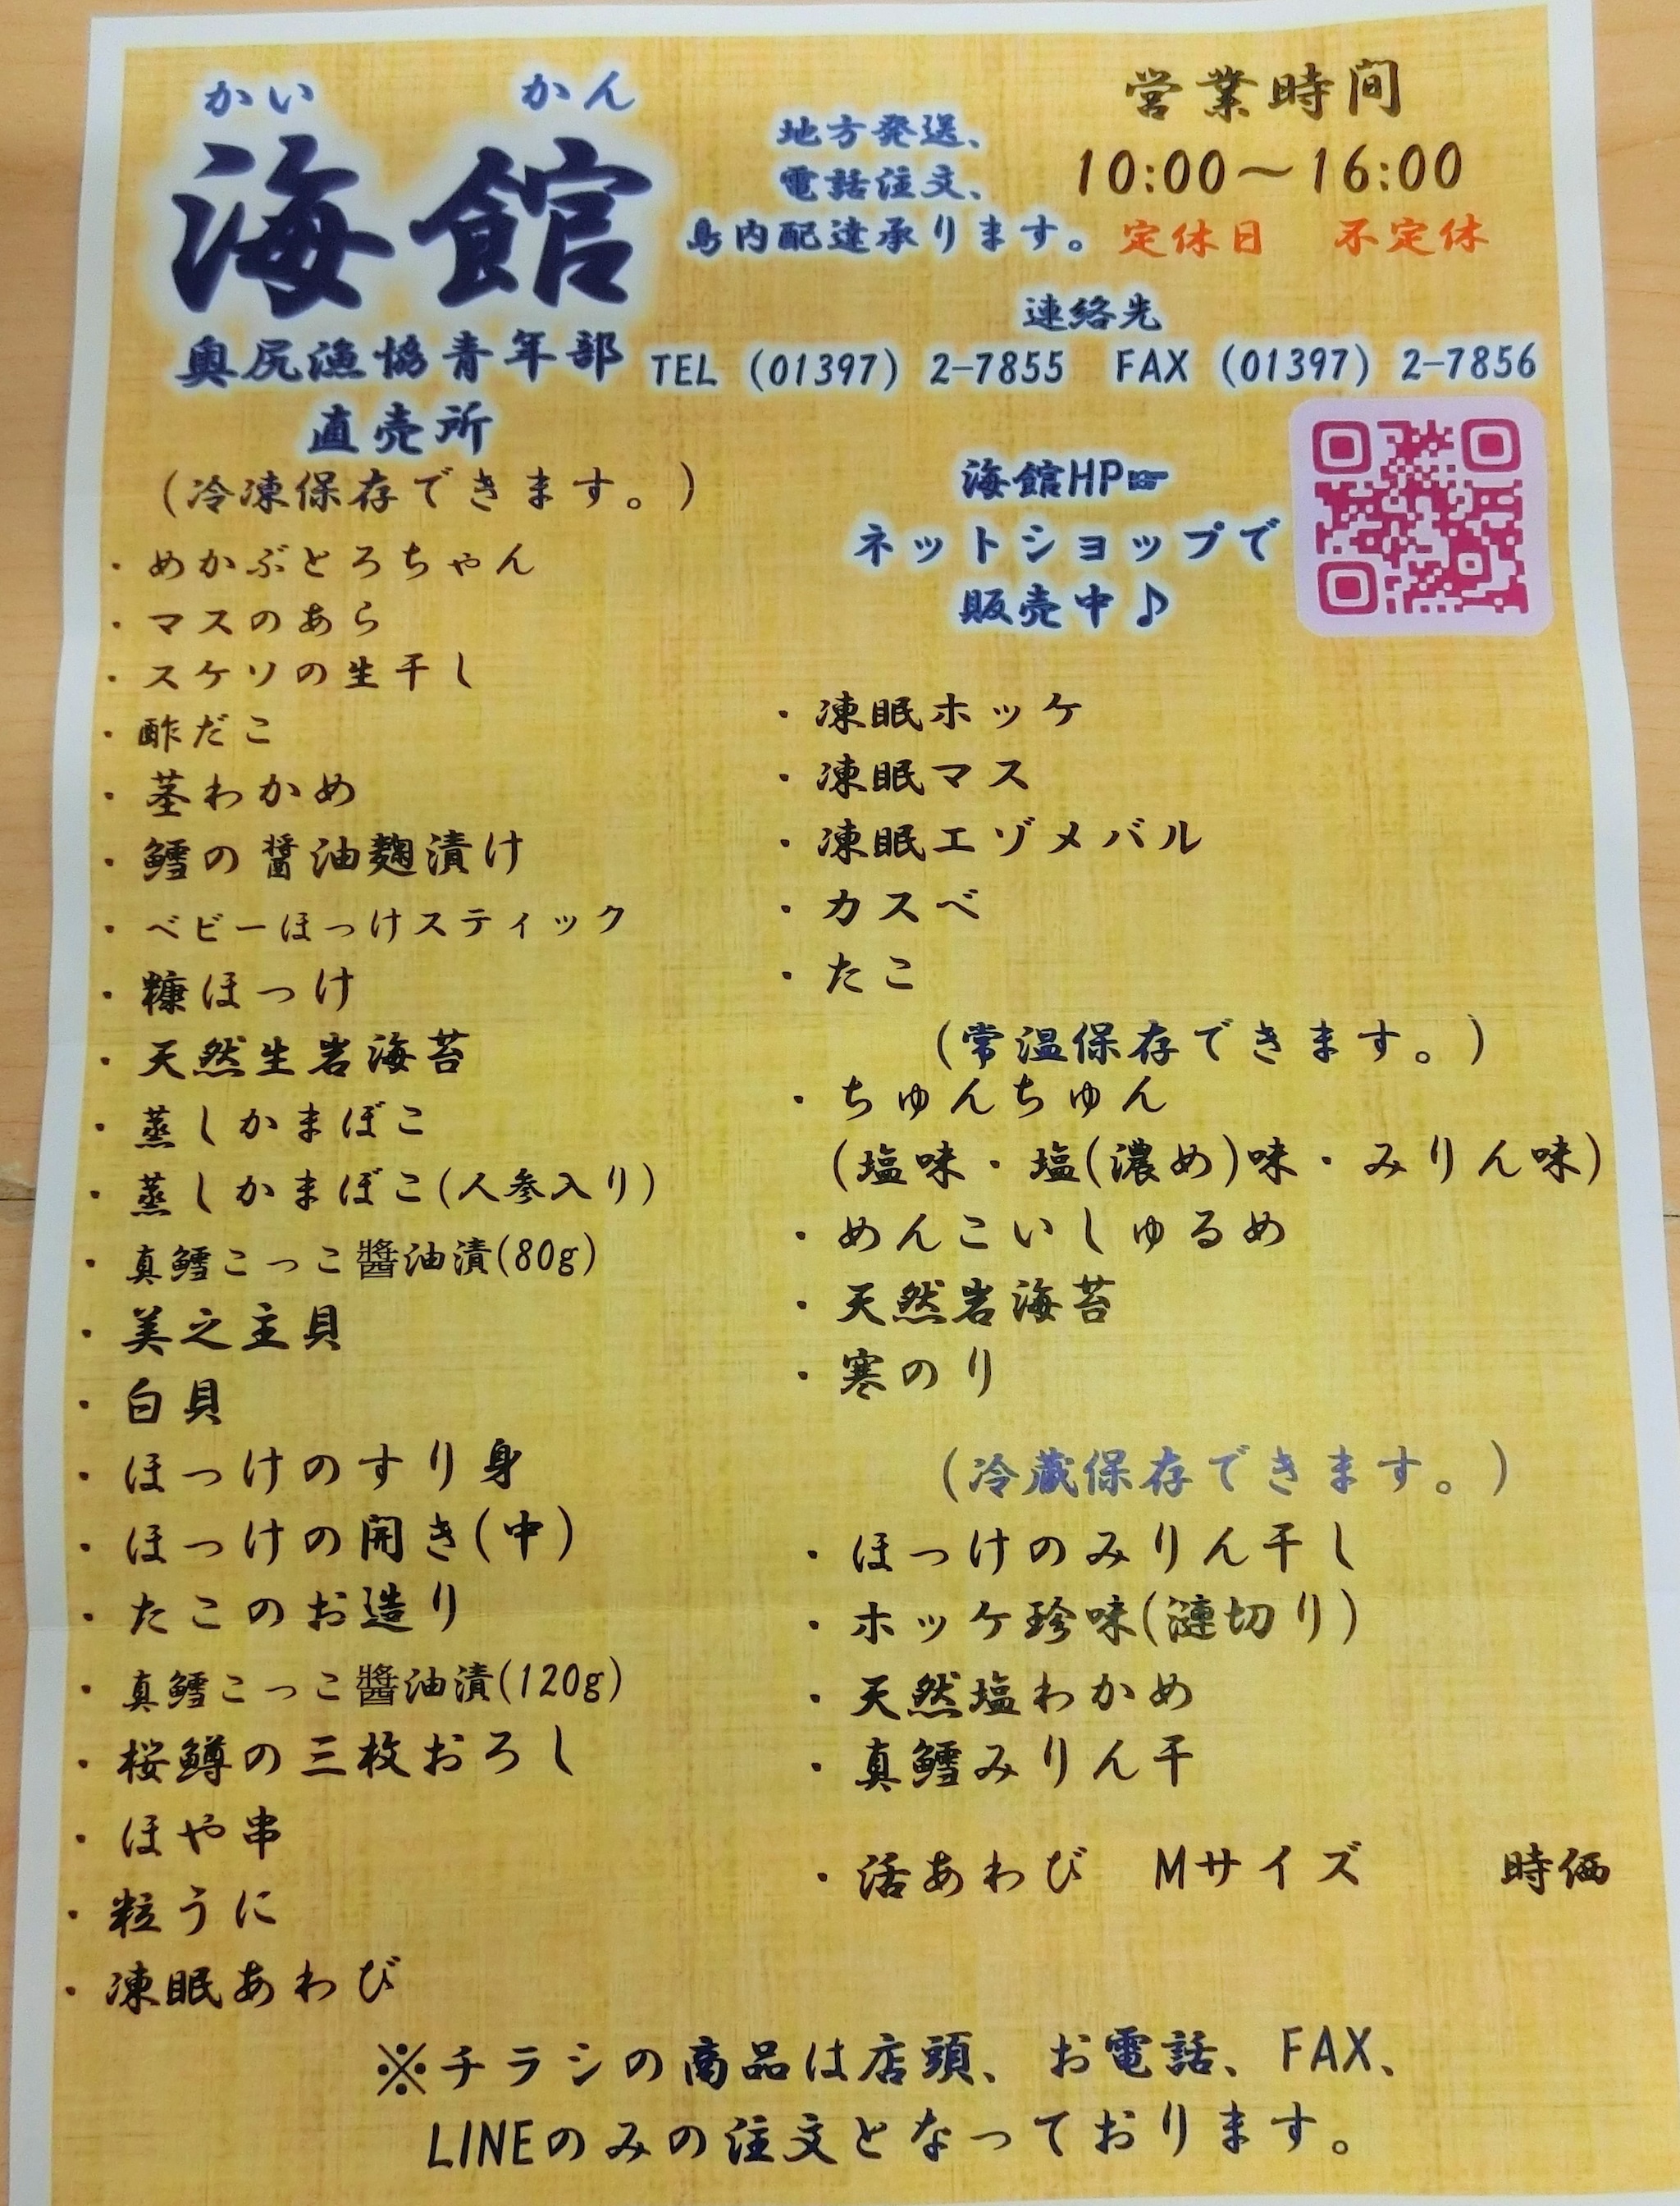 かい かん
海館
奥尻漁協青年部
直売所
地方発送、
電話注文、
島内配達承ります。
営業時間
10:00～16:00
定休日 不定休
連絡先
TEL (01397) 2-7855 FAX (01397) 2-7856
海館HP☞
ネットショップで
販売中♪
(冷凍保存できます。)
・めかぶとろちゃん
・マスのあら
・スケソの生干し
・酢だこ
・茎わかめ
・鱈の醤油麹漬け
・ベビーほっけスティック
・糠ほっけ
・天然生岩海苔
・蒸しかまぼこ
・蒸しかまぼこ(人参入り)
・真鱈こっこ醬油漬(80g)
・美之主貝
・白貝
・ほっけのすり身
・ほっけの開き(中)
・たこのお造り
・真鱈こっこ醬油漬(120g)
・桜鱒の三枚おろし
・ほや串
・粒うに
・凍眠あわび
・凍眠ホッケ
・凍眠マス
・凍眠エゾメバル
・カスベ
・たこ
(常温保存できます。)
・ちゅんちゅん
(塩味・塩(濃め)味・みりん味)
・めんこいしゅるめ
・天然岩海苔
・寒のり
(冷蔵保存できます。)
・ほっけのみりん干し
・ホッケ珍味(漣切り)
・天然塩わかめ
・真鱈みりん干
・活あわび Mサイズ 時価
※チラシの商品は店頭、お電話、FAX、
LINEのみの注文となっております。